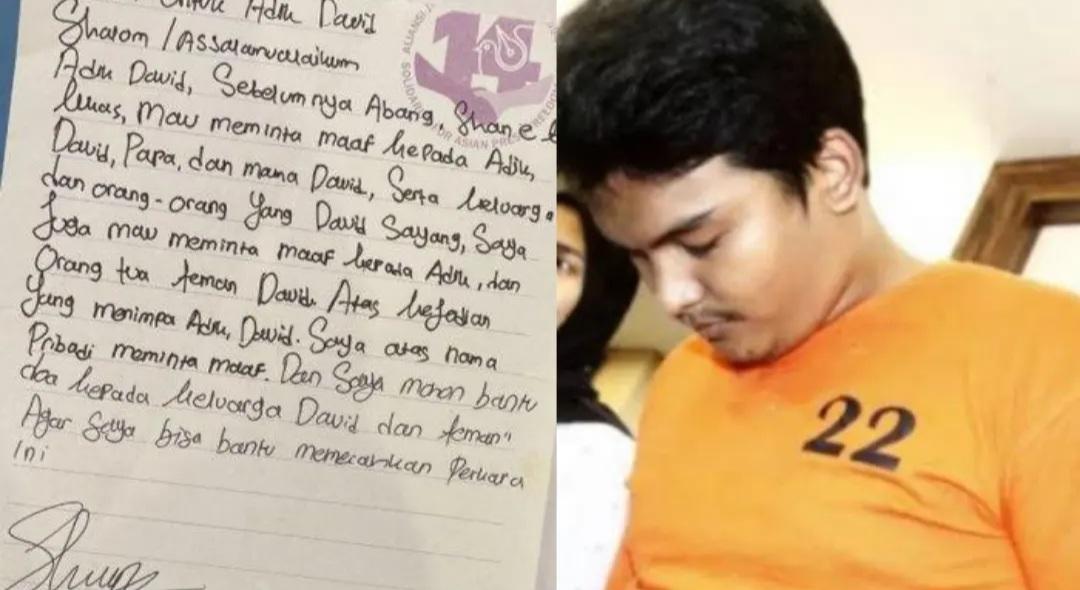 Untuk Adik David
Shalom / Assalamualaikum
Adik David, Sebelumnya Abang, Shane
lukas, Mau meminta maaf kepada Adik,
David, Papa, dan mama David, Serta keluarga
dan orang-orang Yang David Sayang, Saya
Juga mau meminta maaf kepada Adik, dan
Orang tua teman David. Atas kejadian
Yang menimpa Adik, David. Saya atas nama
Pribadi meminta maaf. Dan Saya mohon bantu
doa kepada keluarga David dan teman"
Agar Saya bisa bantu memecahkan Perkara
Ini
22